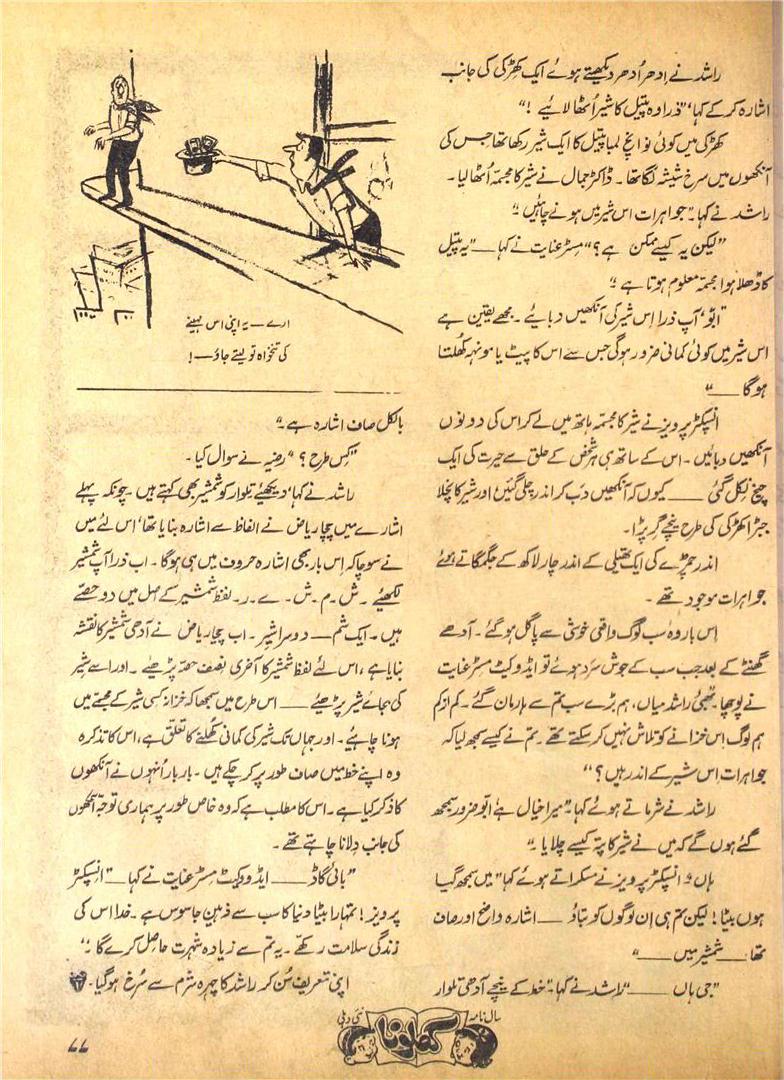 راشد نے اِدھر اُدھر دیکھتے ہوئے ایک کھڑکی کی جانب
اشارہ کر کے کہا‘ ”ذرا وہ پیتل کا شیر اُٹھا لائیے !“
کھڑکی میں کوئی نو اِنچ لمبا پیتل کا ایک شیر رکھا تھا جس کی
آنکھوں میں سرخ شیشہ لگا تھا ۔ ڈاکٹر جمال نے شیر کا مجسمہ اُٹھا لیا ۔
راشد نے کہا ۔ ”جواہرات اس شیر میں ہونے چاہئیں ۔“
”لیکن یہ کیسے ممکن ہے ؟“ مسٹر عنایت نے کہا — ”یہ پیتل
کا ڈھلا ہوا مجسمہ معلوم ہوتا ہے ۔“
”ابّو‘ آپ ذرا اِس شیر کی آنکھیں دبائیے ۔ مجھے یقین ہے
اس شیر میں کوئی کمانی ضرور ہوگی جس سے اس کا پیٹ یا مونہہ کُھلتا
ہوگا —“
انسپکٹر پرویز نے شیر کا مجسمہ ہاتھ میں لے کر اس کی دونوں
آنکھیں دبائیں ۔ اس کے ساتھ ہی ہر شخص کے حلق سے حیرت کی ایک
چیخ نکل گئی — کیوں کہ آنکھیں دب کر اندر چلی گئیں اور شیر کا نچلا
جبڑا کھڑکی کی طرح نیچے گر پڑا ۔
اندر چمڑے کی ایک تھیلی کے اندر چار لاکھ کے جگمگاتے ہوئے
جواہرات موجود تھے ۔
اِس بار وہ سب لوگ واقعی خوشی سے پاگل ہو گئے ۔ آدھے
گھنٹے کے بعد جب سب کے جوش سرد ہوئے تو ایڈوکیٹ مسٹر عنایت
نے پوچھا ۔ ”بھئی راشد میاں، ہم بڑے سب تم سے ہار مان گئے ۔ کم از کم
ہم لوگ اِس خزانے کو تلاش نہیں کر سکتے تھے ۔ تم نے کیسے سمجھ لیا کہ
جواہرات اِس شیر کے اندر ہیں ؟“
راشد نے شرماتے ہوئے کہا ۔ ”میرا خیال ہے ابّو ضرور سمجھ
گئے ہوں گے کہ میں نے شیر کا پتہ کیسے چلایا ۔“
ہاں ؤ انسپکٹر پرویز نے مسکراتے ہوئے کہا ”میں سمجھ گیا
ہوں بیٹا ! لیکن تم ہی اِن لوگوں کو بتاؤ — اشارہ واضح اور صاف
تھا — شمشیر میں —“
”جی ہاں —“ راشد نے کہا ۔ ”خط کے نیچے آدھی تلوار
ارے — یہ اپنی اس مہینے
کی تنخواہ تو لیتے جاؤ — !
بالکل صاف اشارہ ہے ۔“
”کِس طرح ؟“ رضیہ نے سوال کیا ۔
راشد نے کہا‘ دیکھئے تلوار کو شمشیر بھی کہتے ہیں ۔ چونکہ پہلے
اشارے میں چچا ریاض نے الفاظ سے اشارہ بنایا تھا‘ اس لئے میں
نے سوچا کہ اِس بار بھی اشارہ حروف میں ہی ہوگا ۔ اب ذرا آپ شمشیر
لکھئیے ۔ ش ۔ م ۔ ش ۔ ے ۔ ر ۔ لفظ شمشیر کے اصل میں دو حصّے
ہیں ۔ ایک شم — دوسرا شیر ۔ اب چچا ریاض نے آدھی شمشیر کا نقشہ
بنایا ہے ، اس لئے لفظ شمشیر کا آخری نصف حصّہ پڑھیے ۔ اور اسے شیر
کی بجائے شیر پڑھیئے — اس طرح میں سمجھا کہ خزانہ کسی شیر کے مجسمے میں
ہونا چاہیئے ۔ اور جہاں تک شیر کی کمانی کُھلنے کا تعلق ہے ، اس کا تذکرہ
وہ اپنے خط میں صاف طور پر کر چکے ہیں ۔ بار بار اُنہوں نے آنکھوں
کا ذکر کیا ہے ۔ اس کا مطلب ہے کہ وہ خاص طور پر ہماری توجہ آنکھوں
کی جانب دِلانا چاہتے تھے ۔
”بائی گاڈ — ایڈوکیٹ مسٹر عنایت نے کہا — ”انسپکٹر
پرویز ! تمہارا بیٹا دنیا کا سب سے ذہین جاسوس ہے ۔ خدا اس کی
زندگی سلامت رکھے ۔ یہ تم سے زیادہ شہرت حاصل کرے گا ۔“
اپنی تعریف سُن کر راشد کا چہرہ شرم سے سُرخ ہوگیا ۔
سالنامہ کھلونا نئی دہلی
۷۷